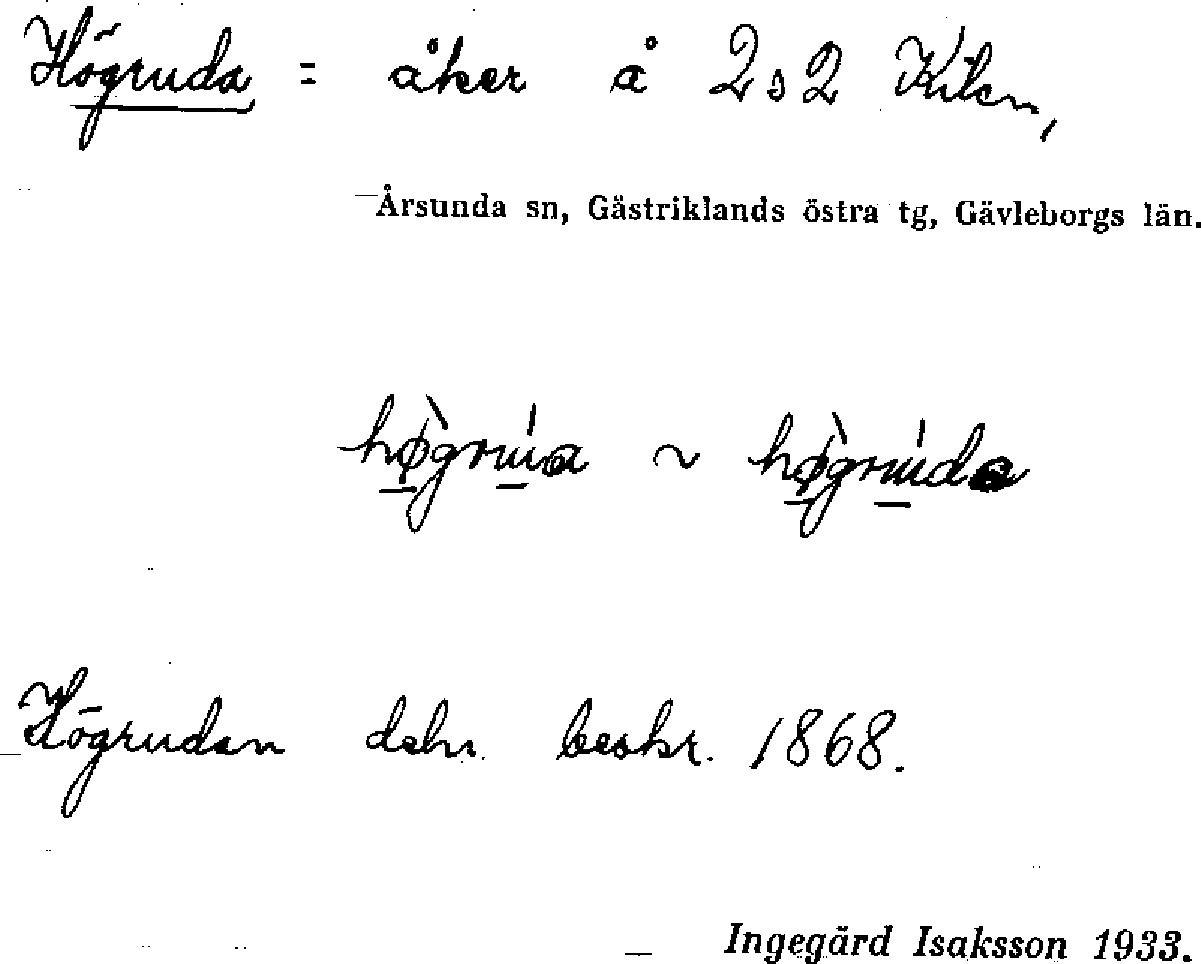 Högruda = åker å 2s2 Kilen,
Årsunda sn, Gästriklands östra tg, Gävleborgs län.
hø̀grúa ~ hø̀grúda
Högrudan dehr. beskr. 1868.
Ingegärd Isaksson 1933.